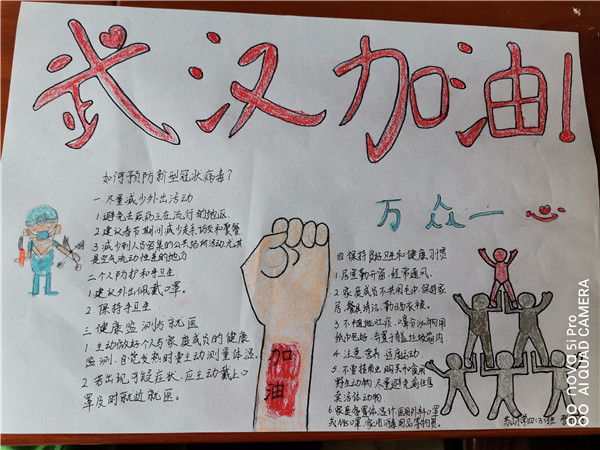 武汉加油!
如何预防新型冠状病毒?
一.尽量减少外出活动
1.避免去疾病正在流行的地区.
2.建议春节期间减少走亲访友和聚餐
3.减少到人员密集的公共场所活动尤其
是空气流动性差的地方
二个人防护和手卫生
1.建议外出佩戴口罩.
2.保持手卫生
三健康监测与就医
1.主动做好个人与家庭成员的健康
监测,自觉发热时要主动测量体温.
2.若出现可疑症状,应主动戴上口
罩及时就近就医。
加油
万众一
四保持良好卫生和健康习惯
1.居室勤开窗,经常通风.
2.家庭成员不共用毛巾,保持家
居、餐具清洁,勤晒衣被.
3.不随地吐痰,口鼻分泌物用
纸巾包好,弃置于有盖垃圾箱内
4.注意营养,适度运动
5.不要接触、购买和食用
野生动物,尽量避免前往售
卖活体动物
6.家庭备置体温计,医用外科口罩
或N95口罩,家用消毒用品等物资.
nova 5i Pro
AI QUAD CAMERA